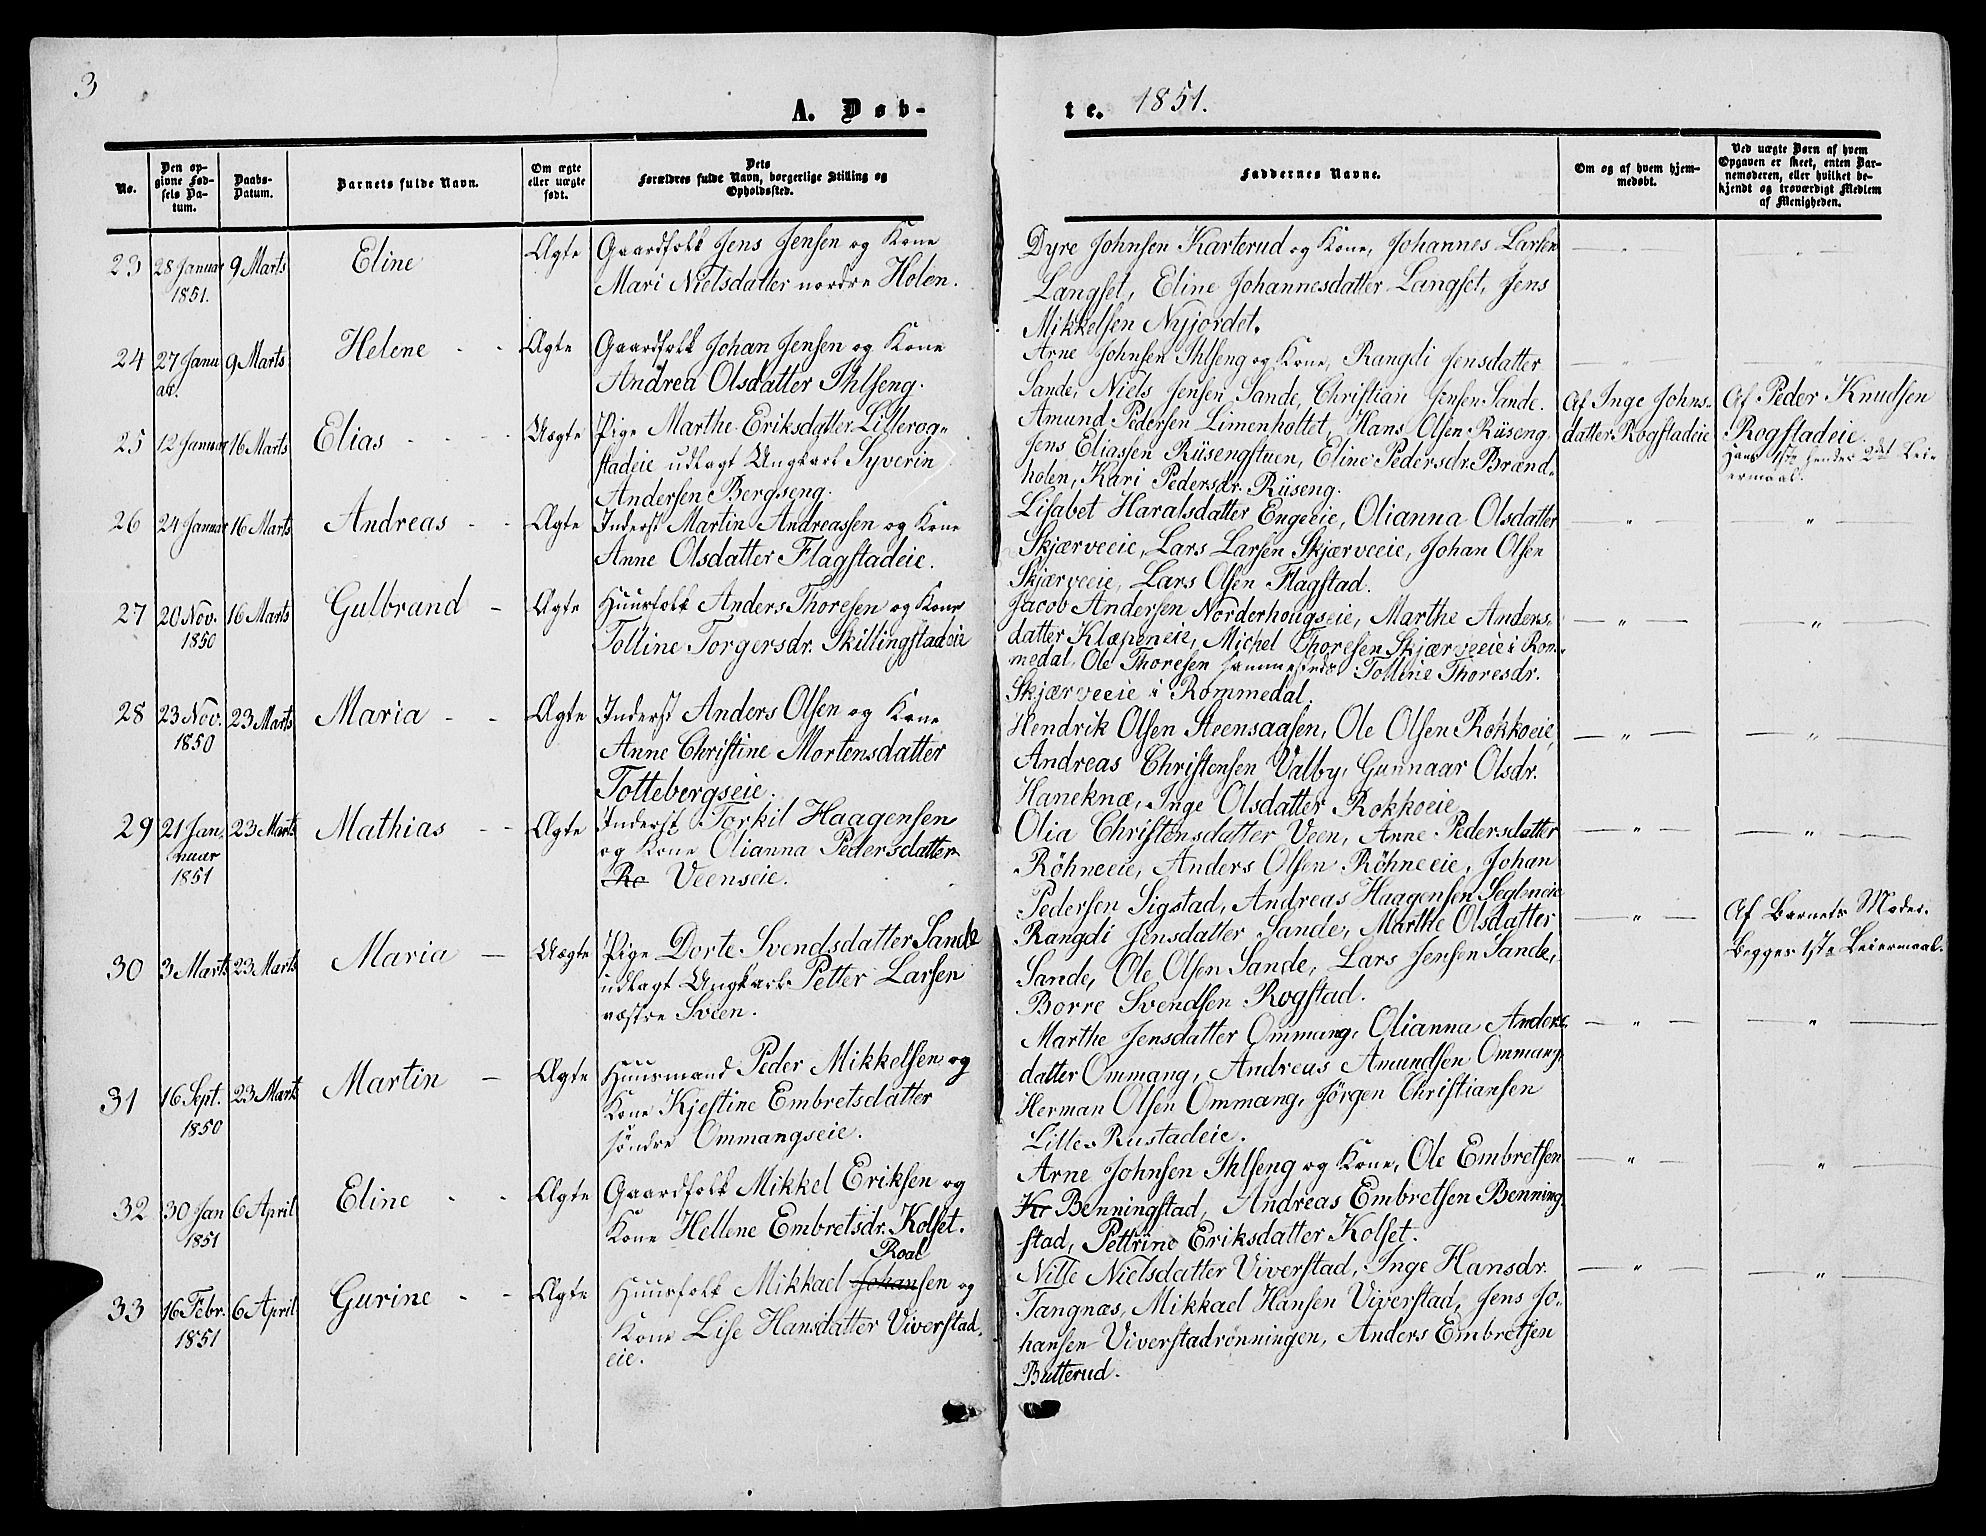 3
A. Døb-
te. 1851.
No.
Den op-
givne Fød-
sels Da-
tum.
Daabs-
Datum.
Barnets fulde Navn.
Om ægte
eller uægte
født.
Dets
Forældres fulde Navn, borgerlige Stilling og
Opholdssted.
Faddernes Navne.
Om og af hvem hjem-
medøbt.
Ved uægte Børn af hvem
Opgaven er skeet, enten Bar-
nemoderen, eller hvilket be-
kjendt og troværdigt Medlem
af Menigheden.
23 28 Januar 9 Marts Eline Ægte Gaardfolk Jens Jensen og Kone
1851. Mari Nielsdatter nordre Holen.
Dyre Johnsen Karterud og Kone, Johannes Larsen
Langset, Eline Johannesdatter Langset, Jens
Mikkelsen Nyjordet.
24 27 Janu 9 Marts Helene Ægte Gaardfolk Johan Jensen og Kone
ar. Andrea Olsdatter Ihlseng.
Arne Johnsen Ihlseng og Kone, Rangdi Jensdatter
Sande, Niels Jensen Sande, Christian Jensen Sande.
25 12 Januar 16 Marts Elias Uægte Pige Marthe Eriksdatter Lillerog-
stadeie udlagt Ungkarl Syverin
Andersen Bergseng.
Amund Pedersen Limenholtet, Hans Olsen Rüseng
Jens Eliassen Rüsengstuen, Eline Pedersdr. Brænd-
holen, Kari Pedersdr. Rüseng.
Af Inge Johns-
datter Rogstadeie
Af Peder Knudsen
Rogstadeie.
Hans 1ste hendes 2det Lei-
ermaal.
26 24 Januar 16 Marts Andreas Ægte Inderst Martin Andreassen og Kone
Anne Olsdatter Flagstadeie.
Lisabet Haralsdatter Engeeie, Olianna Olsdatter
Skjærveeie, Lars Larsen Skjærveeie, Johan Olsen
Skjærveeie, Lars Olsen Flagstad.
27 20 Nov. 16 Marts Gulbrand Ægte Huusfolk Anders Thoresen og Kone
1850 Tolline Torgersdr. Skillingstadeie
Jacob Andersen Norderhougseie, Marthe Anders-
datter Klæpeneie, Michel Thoresen Skjærveeie i Rom-
medal, Ole Thoresen sammesteds Tolline Thoresdr.
Skjærveeie i Rommedal.
28 23 Nov. 23 Marts Maria Ægte Inderst Anders Olsen og Kone
1850 Anne Christine Mortensdatter
Tottebergseie.
Hendrik Olsen Steensaasen, Ole Olsen Rokkoeie,
Andreas Christensen Valby, Gunnaar Olsdr.
Haneknæ, Inge Olsdatter Rokkoeie
29 21 Jan. 23 Marts Mathias Ægte Inderst Torkil Haagensen
nuar og Kone Olianna Pedersdatter
1851 Ro Veenseie.
Olia Christensdatter Veen, Anne Pedersdatter
Röhneeie, Anders Olsen Röhneeie, Johan
Pedersen Sigstad, Andreas Haagensen Segleneie
30 3 Marts 23 Marts Maria Uægte Pige Dorte Svendsdatter Sande
udlagt Ungkarl Petter Larsen
vestre Sveen.
Rangdi Jensdatter Sande, Marthe Olsdatter
Sande, Ole Olsen Sande, Lars Jensen Sande,
Borre Svendsen Rogstad.
Af Barnets Moder.
Begges 1ste Leiermaal.
31 16 Sept. 23 Marts Martin Ægte Huusmand Peder Mikkelsen og
1850 Kone Kjestine Embretsdatter
söndre Ommangseie.
Marthe Jensdatter Ommang, Olianna Anders-
datter Ommang, Andreas Amundsen Ommang
Herman Olsen Ommang, Jörgen Christiansen
Lille Rustadeie.
32 30 Jan 6 April Eline Ægte Gaardfolk Mikkel Eriksen og
1851 Kone Hellene Embretsdr. Kolset.
Arne Johnsen Ihlseng og Kone, Ole Embretsen
Ko Benningstad, Andreas Embretsen Benning-
stad, Pettrine Eriksdatter Kolset.
Roal
33 16 Febr. 6 April Gurine Ægte Huusfolk Mikkael Johansen og
1851 Kone Lise Hansdatter Viverstad-
eie.
Nilse Nielsdatter Viverstad, Inge Hansdr.
Tangnæs, Mikkael Hansen Viverstad, Jens Jo-
hansen Viverstadrönningen, Anders Embretsen
Butterud.